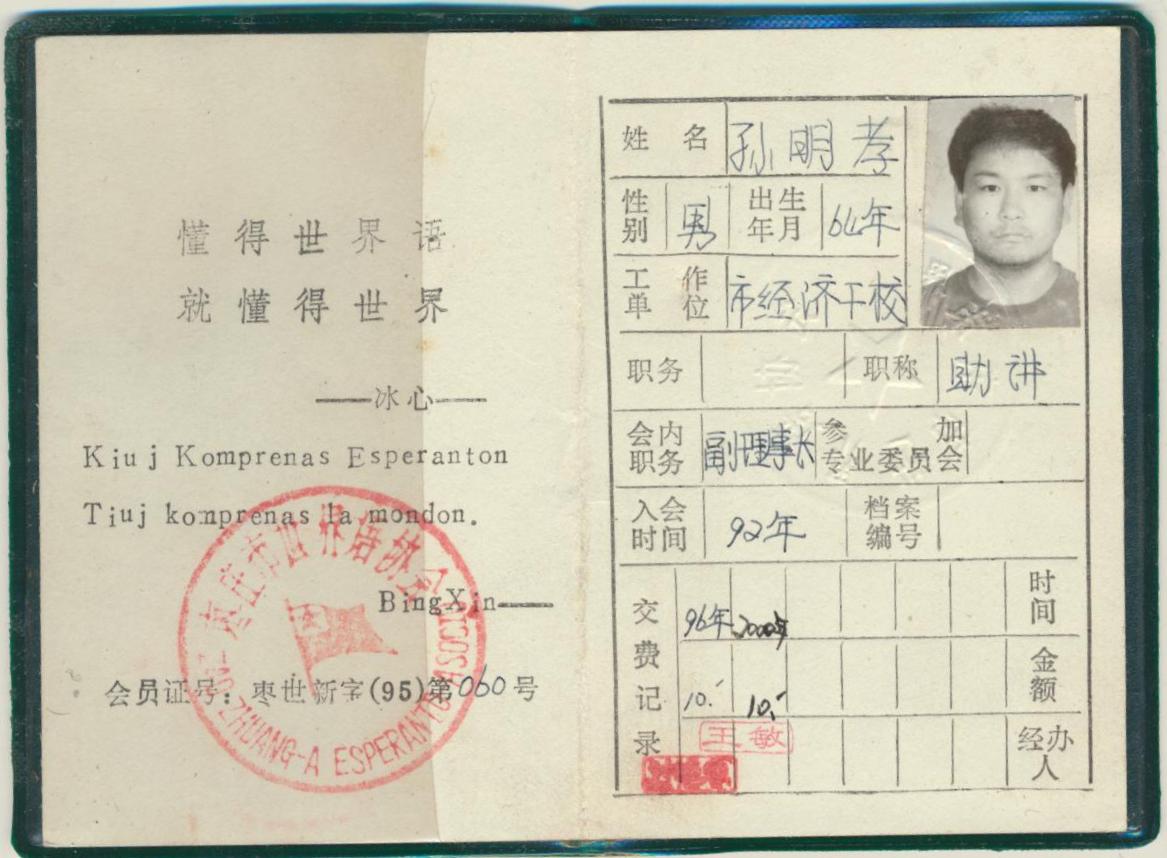 懂得世界语
就懂得世界
——冰心——
Kiuj Komprenas Esperanton
Tiuj komprenas la mondon.
BingXin——
会员证号：枣世新字(95)第060号
枣庄市世界语协会
ZAŬ-ZHUANG-A ESPERANTO-ASOCIO
姓名 孙明孝
性别 男 出生年月 64年
工作单位 市经济干校
职务 职称 助讲
会内职务 副理事长 参加专业委员会
入会时间 92年 档案编号
交费记录 96年 2000年 时间
10.- 10.- 金额
王敏 经办人